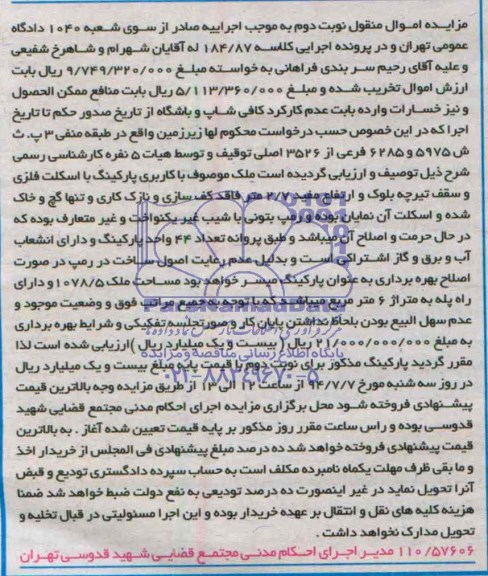 مزایده اموال منقول نوبت دوم به موجب اجراییه صادر از سوی شعبه ۱۰۴۰ دادگاه
عمومی تهران و در پرونده اجرایی کلاسه ۱۸۴/۸۷ له آقایان شهرام و شاهرخ شفیعی
و علیه آقای رحیم سر بندی فراهانی به خواسته مبلغ ۹/۷۴۹/۳۲۰/۰۰۰ ریال بابت
ارزش اموال تخریب شده و مبلغ ۵/۱۱۳/۳۶۰/۰۰۰ ریال بابت منافع ممکن الحصول
و نیز خسارات وارده بابت عدم کارکرد کافی شاپ و باشگاه از تاریخ صدور حکم تا تاریخ
اجرا که در این خصوص حسب درخواست محکوم لها زیرزمین واقع در طبقه منفی ۳ پ. ث
ش ۵۹۷۵ و ۶۲۸۵ فرعی از ۳۵۲۶ اصلی توقیف و توسط هیات ۵ نفره کارشناسی رسمی
شرح ذیل توصیف و ارزیابی گردیده است ملک موصوف با کاربری پارکینگ با اسکلت فلزی
و سقف تیرچه بلوک و ارتفاع مفید ۲/۷ متر فاقد کف سازی و نازک کاری و تنها گچ و خاک
شده و اسکلت آن نمایان بوده و رمپ بتونی با شیب غیر یکنواخت و غیر متعارف بوده که
در حال حرمت و اصلاح آن میباشد و طبق پروانه تعداد ۴۴ واحد پارکینگ و دارای انشعاب
آب و برق و گاز اشتراکی است و بدلیل عدم رعایت اصول ساخت در رمپ در صورت
اصلاح بهره برداری به عنوان پارکینگ میسر خواهد بود مساحت ملک ۱۰۷۸/۵ و دارای
راه پله به متراژ ۶ متر مربع میباشد که با توجه به جمیع مراتب فوق و وضعیت موجود و
عدم سهل البیع بودن بلحاظ نداشتن پایان کار و صورتجلسه تفکیکی و شرایط بهره برداری
به مبلغ ۲۱/۰۰۰/۰۰۰/۰۰۰ ریال (بیست و یک میلیارد ریال) ارزیابی شده است لذا
مقرر گردید پارکینگ مذکور برای نوبت دوم با قیمت پایه مبلغ بیست و یک میلیارد ریال
در روز سه شنبه مورخ ۹۴/۷/۷ از ساعت ۱۲ الی ۱۳ از طریق مزایده وجه بالاترین قیمت
پیشنهادی فروخته شود محل برگزاری مزایده اجرای احکام مدنی مجتمع قضایی شهید
قدوسی بوده و راس ساعت مقرر روز مذکور بر پایه قیمت تعیین شده آغاز . به بالاترین
قیمت پیشنهادی فروخته خواهد شد ده درصد مبلغ پیشنهادی فی المجلس از خریدار اخذ
و ما بقی ظرف مهلت یکماه نامبرده مکلف است به حساب سپرده دادگستری تودیع و قبض
آنرا تحویل نماید در غیر اینصورت ده درصد تودیعی به نفع دولت ضبط خواهد شد ضمنا
هزینه کلیه های نقل و انتقال بر عهده خریدار بوده و این اجرا مسئولیتی در قبال تخلیه و
تحویل مدارک نخواهد داشت .
۱۱۰/۵۷۶۰۶ مدیر اجرای احکام مدنی مجتمع قضایی شهید قدوسی تهران
ParsNamadData
پایگاه اطلاع رسانی مناقصه و مزایده